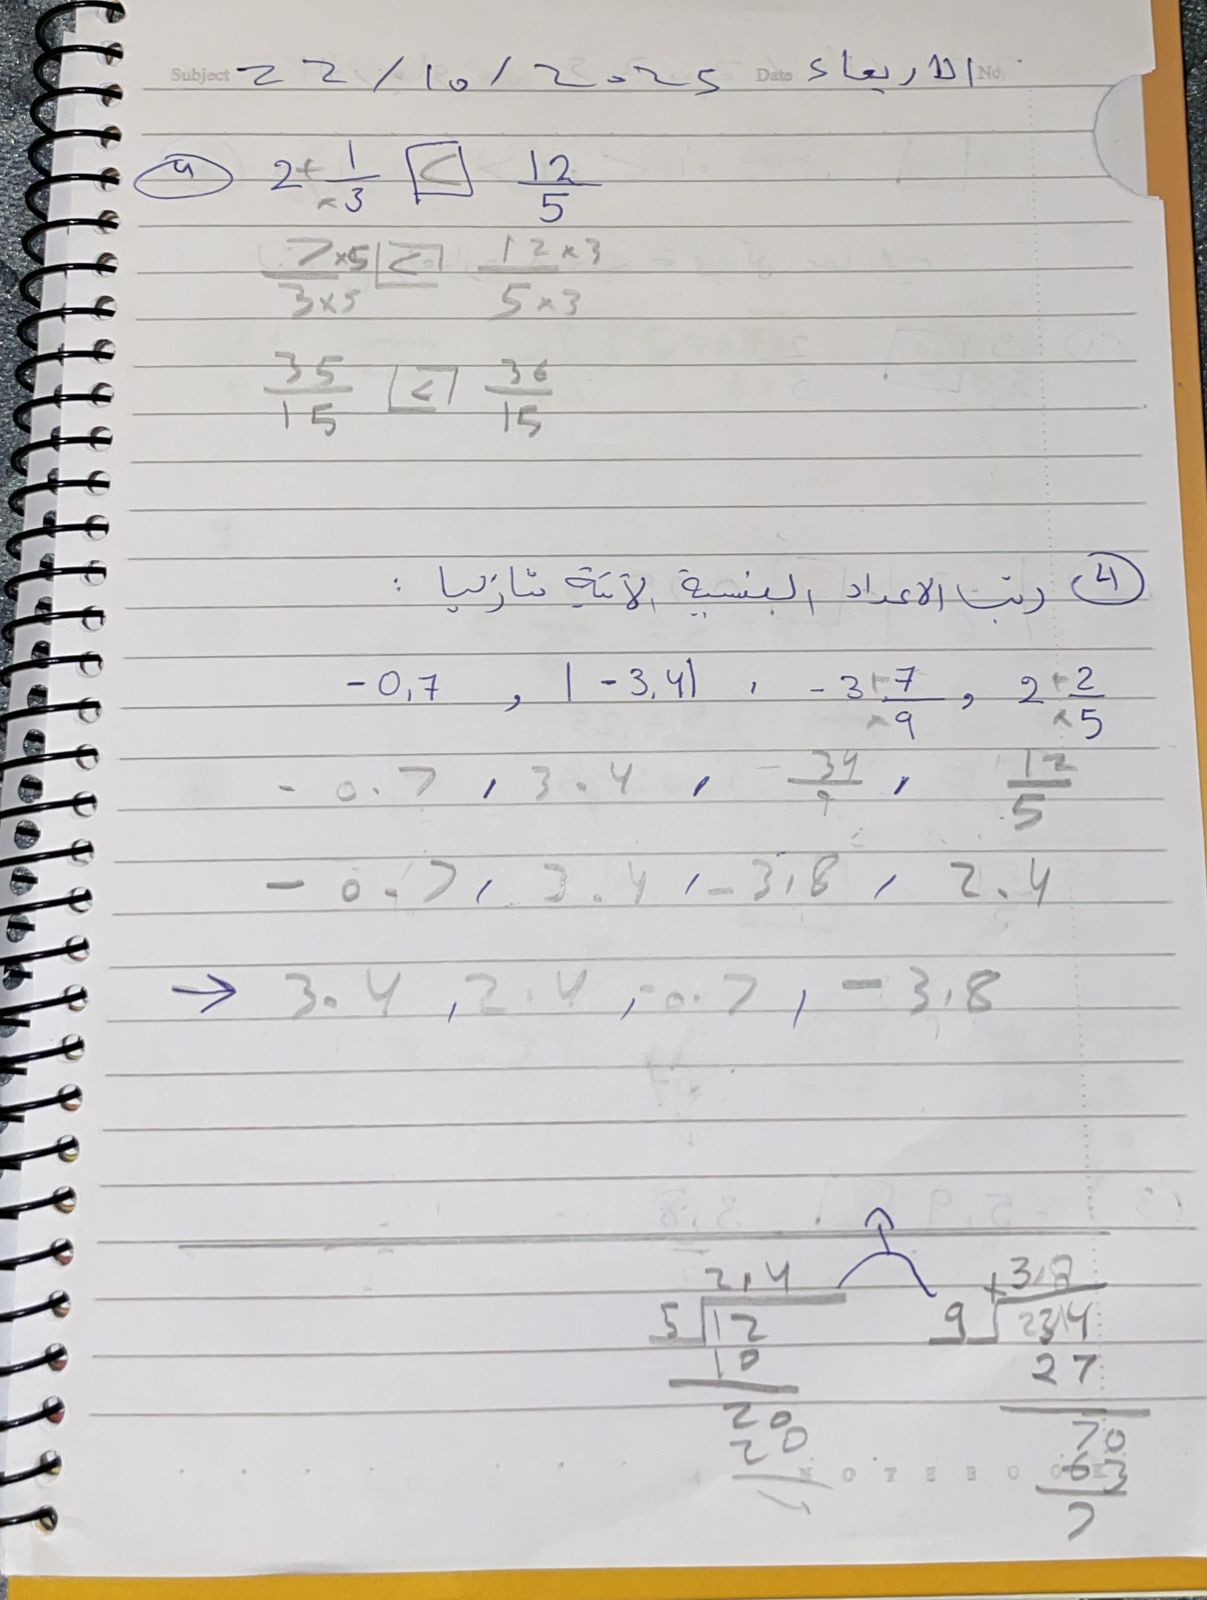 Subject 22/10/2025 Date الاربعاء No.
9 2+1/×3 < 12/5
7×5/3×5 < 12×3/5×3
35/15 < 36/15
4 رتب الاعداد النسبية الآتية تنازليا :
-0,7 , |-3,4| , -3+7/×9 , 2+2/×5
-0.7 , 3.4 , -34/9 , 12/5
-0.7 , 3.4 , -3,8 , 2.4
→ 3.4 , 2.4 , -0.7 , -3,8
2,4 3,8
5 12 9 34
10 27
20 70
20 63
7
NOTEBOOK